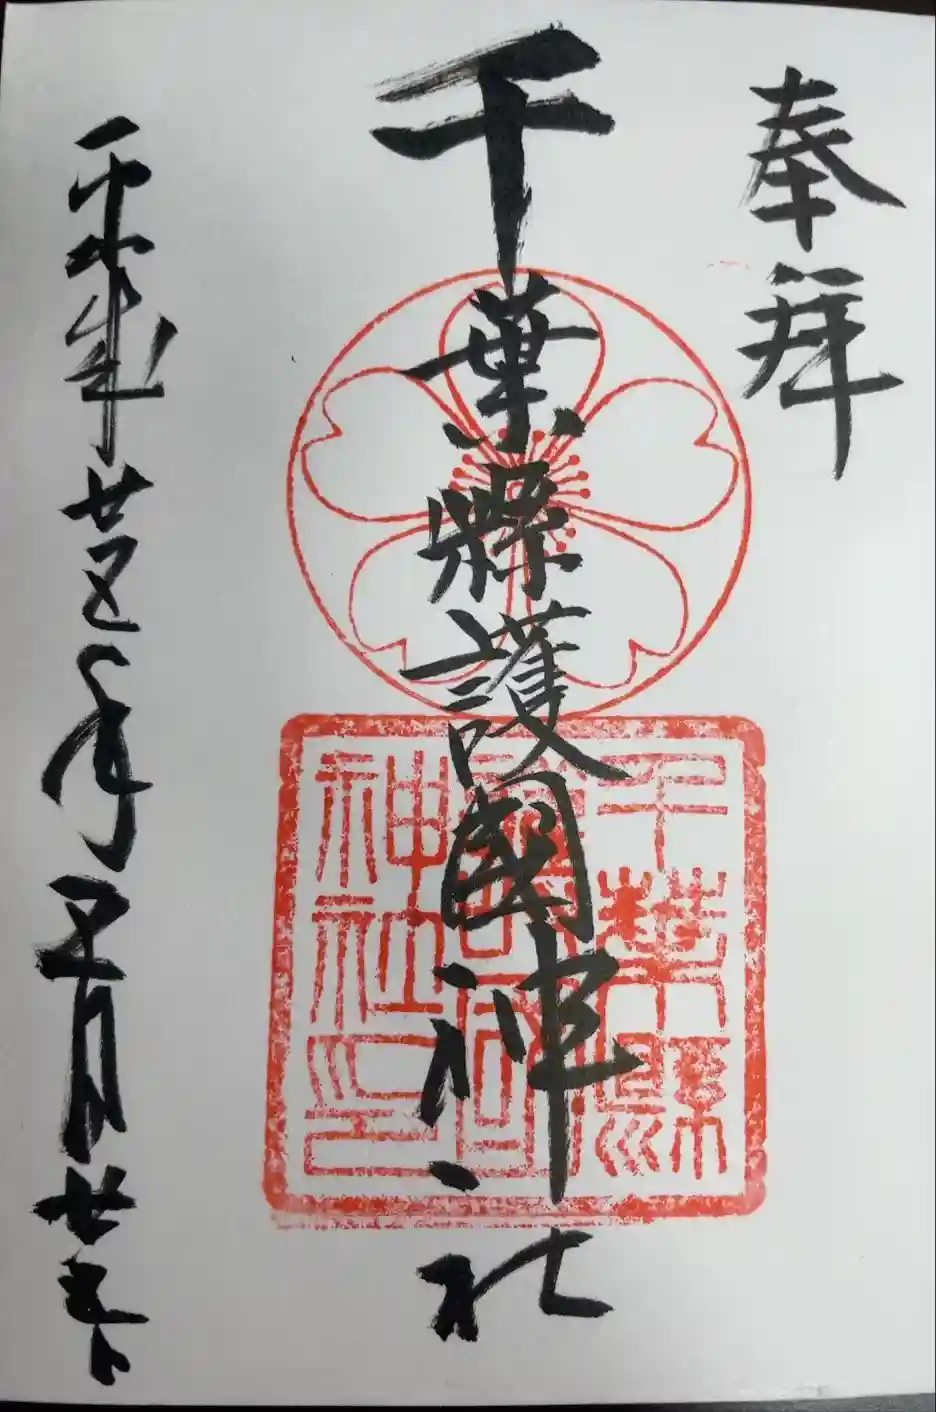 奉拝
千葉縣護國神社
千葉縣
護國
神社印
平成廿五年五月廿